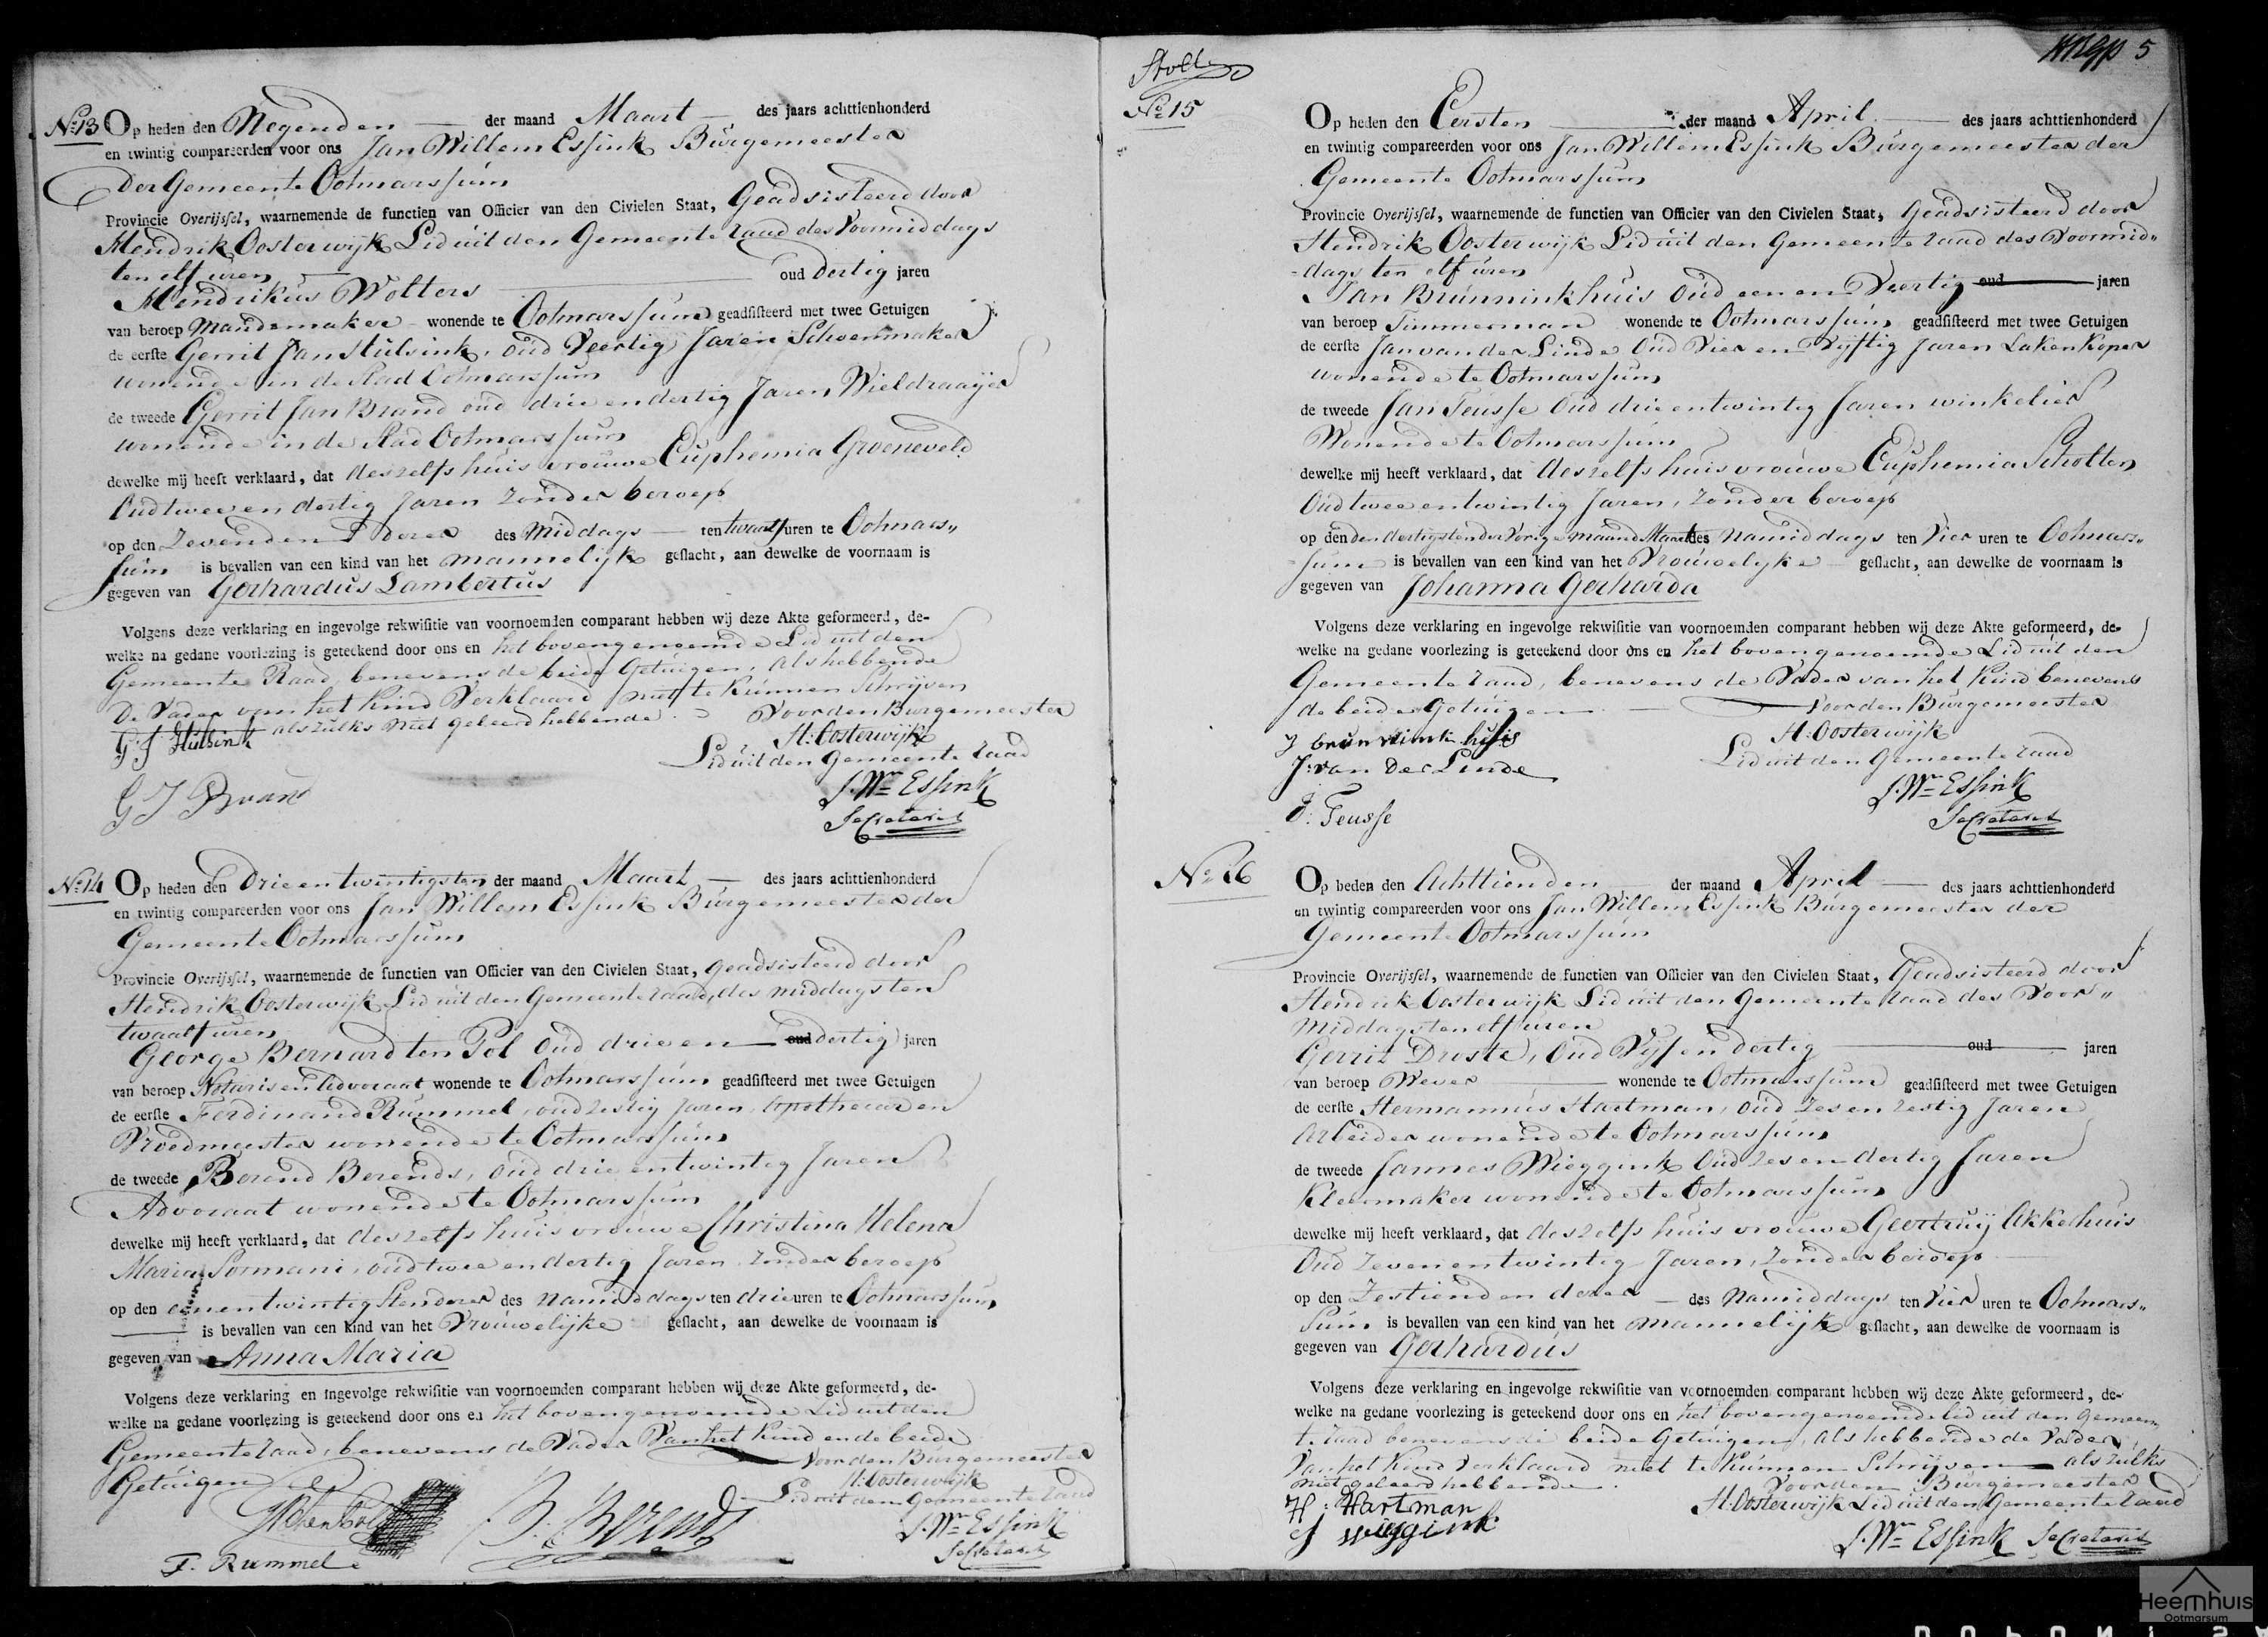 No 13 Op heden den Negenden der maand Maart des jaars achttienhonderd
en twintig compareerden voor ons Jan Willem Essink Burgemeester
der Gemeente Ootmarssum
Provincie Overijssel, waarnemende de functien van Officier van den Civielen Staat, Geadsisteerd door
Hendrik Oosterwijk Lid uit den Gemeente raad des Voormiddags
ten elf uren
Hendrikus Wolters oud Dertig jaren
van beroep Mandemaker wonende te Ootmarssum geadsisteerd met twee Getuigen
de eerste Gerrit Jan Hulsink, oud Veertig Jaren Schoenmaker
wonende in de Stad Ootmarssum
de tweede Gerrit Jan Brand oud drie en dertig Jaren Wieldraayer
wonende in de Stad Ootmarssum
dewelke mij heeft verklaard, dat deszelfs huisvrouwe Euphemia Groeneveld
Oud twee en dertig Jaren zonder beroep
op den Zevenden dezer des Middags ten twaalf uren te Ootmars„
sum is bevallen van een kind van het mannelijk geslacht, aan dewelke de voornaam is
gegeven van Gerhardus Lambertus
Volgens deze verklaring en ingevolge rekwisitie van voornoemden comparant hebben wij deze Akte geformeerd, de-
welke na gedane voorlezing is geteekend door ons en het bovengenoemde Lid uit den
Gemeente Raad, benevens de beide Getuigen, als hebbende
de Vader van het Kind Verklaard niet te kunnen Schrijven
als zulks niet geleerd hebbende. Voor den Burgemeester
G. J. Hulsink H: Oosterwijk
Lid uit den Gemeente raad
G J Brand J. Wm Essink
Secretaris
No 14 Op heden den Drie en twintigsten der maand Maart des jaars achttienhonderd
en twintig compareerden voor ons Jan Willem Essink Burgemeester der
Gemeente Ootmarssum
Provincie Overijssel, waarnemende de functien van Officier van den Civielen Staat, geadsisteerd door
Hendrik Oosterwijk Lid uit den Gemeente raad, des middags ten
twaalf uren
George Bernard ten Pol oud drie en oud dertig jaren
van beroep Notaris en Advocaat wonende te Ootmarssum geadsisteerd met twee Getuigen
de eerste Ferdinand Rummel, oud zestig Jaren, Apothecar en
Vroedmeester wonende te Ootmarssum
de tweede Berend Berends, oud drie en twintig Jaren
Advocaat wonende te Ootmarssum
dewelke mij heeft verklaard, dat deszelfs huisvrouwe Christina Helena
Maria Sormani, oud twee en dertig Jaren, zonder beroep
op den eenentwintigsten dezer des namiddags ten drie uren te Ootmarssum
is bevallen van een kind van het Vrouwelijke geslacht, aan dewelke de voornaam is
gegeven van Anna Maria
Volgens deze verklaring en ingevolge rekwisitie van voornoemden comparant hebben wij deze Akte geformeerd, de-
welke na gedane voorlezing is geteekend door ons en het bovengenoemde Lid uit den
Gemeente raad, benevens de Vader Van het Kind en de beide
Getuigen Voor den Burgemeester
H: Oosterwijk
Lid uit den Gemeente raad
B. Berends J. Wm Essink
F. Rummel Secretaris
5
No 15
Op heden den Eersten der maand April des jaars achttienhonderd
en twintig compareerden voor ons Jan Willem Essink Burgemeester der
Gemeente Ootmarssum
Provincie Overijssel, waarnemende de functien van Officier van den Civielen Staat, Geadsisteerd door
Hendrik Oosterwijk Lid uit den Gemeente raad des Voormid„
dags ten elf uren
Jan Brunninkhuis Oud een en Veertig oud jaren
van beroep Timmerman wonende te Ootmarssum geadsisteerd met twee Getuigen
de eerste Jan van der Linde Oud Vier en Vijftig Jaren Lakenkoper
wonende te Ootmarssum
de tweede Jan Teusse Oud drie en twintig Jaren winkelier
Wonende te Ootmarssum
dewelke mij heeft verklaard, dat deszelfs huisvrouwe Euphemia Scholten
Oud twee en twintig Jaren, zonder beroep
op den den dertigsten der Vorige maand Maart des Namiddags ten Vier uren te Ootmars„
sum is bevallen van een kind van het Vrouwelyke geslacht, aan dewelke de voornaam is
gegeven van Johanna Gerharda
Volgens deze verklaring en ingevolge rekwisitie van voornoemden comparant hebben wij deze Akte geformeerd, de-
welke na gedane voorlezing is geteekend door ons en het bovengenoemde Lid uit den
Gemeente raad, benevens de Vader van het Kind benevens
de beide Getuigen Voor den Burgemeester
J brunninkhuis H: Oosterwijk
J: van der Linde Lid uit den Gemeente raad
J: Teusse J. Wm Essink
Secretaris
No 16 Op heden den Achttienden der maand April des jaars achttienhonderd
en twintig compareerden voor ons Jan Willem Essink Burgemeester der
Gemeente Ootmarssum
Provincie Overijssel, waarnemende de functien van Officier van den Civielen Staat, Geadsisteerd door
Hendrik Oosterwijk Lid uit den Gemeente raad des Voor„
middags ten elf uren
Gerrit Droste, Oud Vijf en dertig oud jaren
van beroep Wever wonende te Ootmarssum geadsisteerd met twee Getuigen
de eerste Hermannus Hartman, Oud Zes en zestig Jaren
Arbeider wonende te Ootmarssum
de tweede Jannes Wieggink Oud Zes en dertig Jaren
Kleermaker wonende te Ootmarssum
dewelke mij heeft verklaard, dat deszelfs huisvrouwe Geertruij Akkerhuis
Oud Zeven en twintig Jaren, Zonder beroep
op den Zestienden dezer des Namiddags ten Vier uren te Ootmars„
sum is bevallen van een kind van het mannelijk geslacht, aan dewelke de voornaam is
gegeven van Gerhardus
Volgens deze verklaring en ingevolge rekwisitie van voornoemden comparant hebben wij deze Akte geformeerd, de-
welke na gedane voorlezing is geteekend door ons en het bovengenoemde lid uit den Gemeen„
te raad benevens de beide Getuigen, als hebbende de Vader
Van het Kind Verklaard niet te kunnen Schrijven als zulks
niet geleerd hebbende. Voor den Burgemeester
H: Hartman H: Oosterwijk Lid uit den Gemeente raad
J wieggink
J. Wm Essink Secretaris
Heemhuis
Ootmarsum